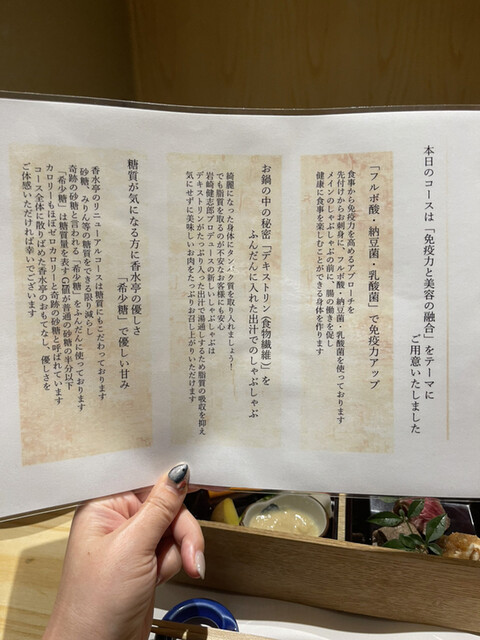 本日のコースは「免疫力と美容の融合」をテーマに
ご用意いたしました
「フルボ酸・納豆菌・乳酸菌」で免疫力アップ
食事から免疫力を高めるアプローチを
先付けからお刺身に、フルボ酸・納豆菌・乳酸菌を使っております
メインのしゃぶしゃぶの前に、腸の働きを促し
健康に食事を楽しむことができる身体を作ります
お鍋の中の秘密「デキストリン（食物繊維）」を
ふんだんに入れた出汁でのしゃぶしゃぶ
綺麗になった身体にタンパク質を取り入れましょう！
でも脂質を取るのが不安なお客様にも安心
岩崎健志郎プロデュースの新しいしゃぶしゃぶは
デキストリンがたっぷり入った出汁で湯通しするため脂質の吸収を抑え
気にせずに美味しいお肉をたっぷりお召し上がりいただけます
糖質が気になる方に香水亭の優しさ
「希少糖」で優しい甘み
香水亭のリニューアルコースは糖質にもこだわっております
砂糖、みりん等の糖質をできる限り減らし
奇跡の砂糖と言われる「希少糖」をふんだんに使っております
「希少糖」は糖質量を表すGI値が普通の砂糖の半分以下
カロリーもほぼゼロカロリーと奇跡の砂糖と呼ばれています
コース全体に散りばめた香水亭のおもてなし、優しさを
ご体感いただければ幸いでございます